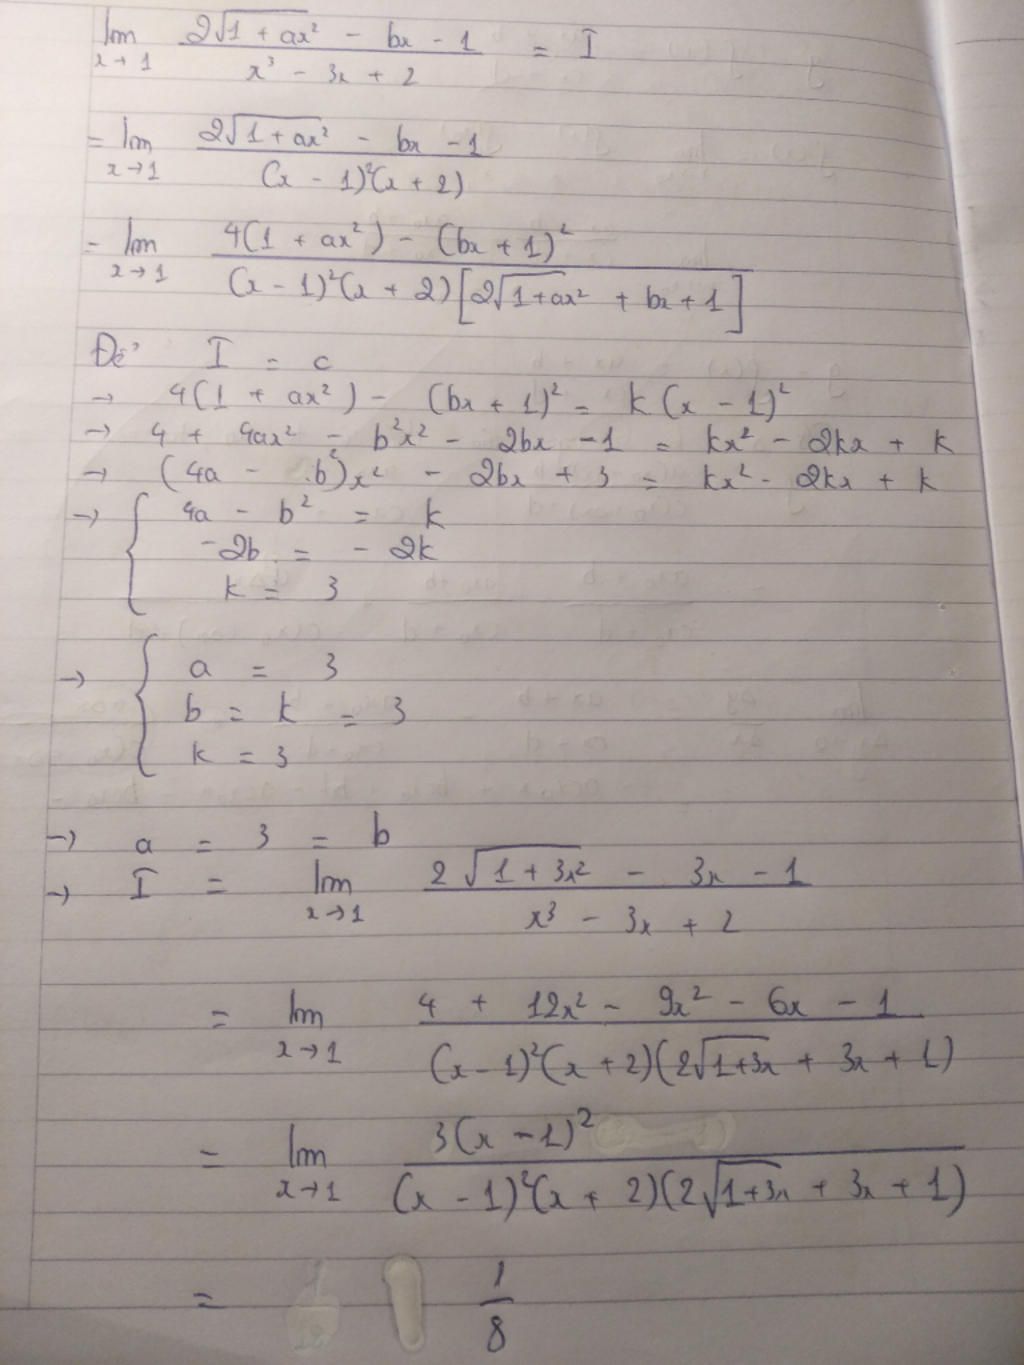 lim x→1 (2√(1 + ax²) - bx - 1) / (x³ - 3x + 2) = I
= lim x→1 (2√(1+ax²) - bx - 1) / ((x - 1)²(x + 2))
= lim x→1 (4(1 + ax²) - (bx + 1)²) / ((x - 1)²(x + 2)[2√(1+ax²) + bx + 1])
Để I = c
→ 4(1 + ax²) - (bx + 1)² = k(x - 1)²
→ 4 + 4ax² - b²x² - 2bx - 1 = kx² - 2kx + k
→ (4a - b²)x² - 2bx + 3 = kx² - 2kx + k
→ { 4a - b² = k
-2b = - 2k
k = 3
→ { a = 3
b = k = 3
k = 3
→ a = 3 = b
→ I = lim x→1 (2√(1 + 3x²) - 3x - 1) / (x³ - 3x + 2)
= lim x→1 (4 + 12x² - 9x² - 6x - 1) / ((x - 1)²(x + 2)(2√(1+3x) + 3x + 1))
= lim x→1 (3(x - 1)²) / ((x - 1)²(x + 2)(2√(1+3x) + 3x + 1))
= 1/8